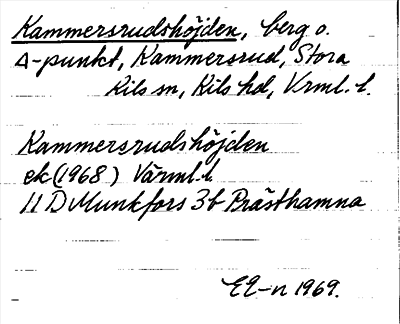 Kammersrudshöjden, berg o.
∆-punkt, Kammersrud, Stora
Kils sn, Kils hd, Vrml. l.
Kammersrudshöjden
ek (1968) Värml. l.
11 D Munkfors 3b Prästhamna
EE-n 1969.